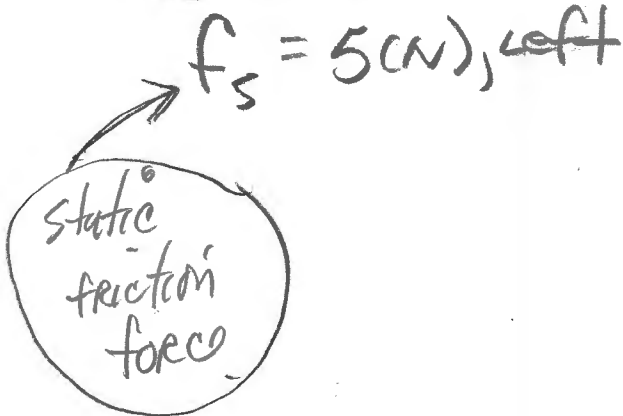 fs = 5(N), Left
static
friction
force